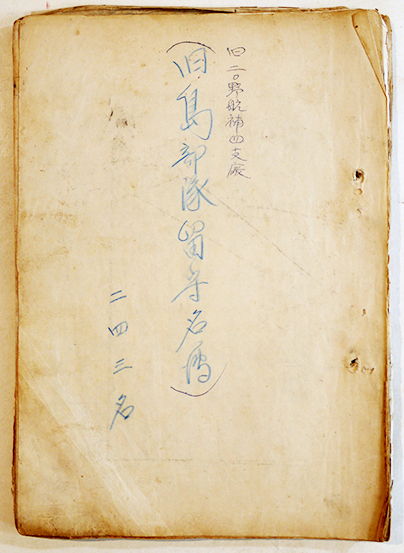 旧二〇野航補四支廠
(旧島部隊留守名簿)
二四三名